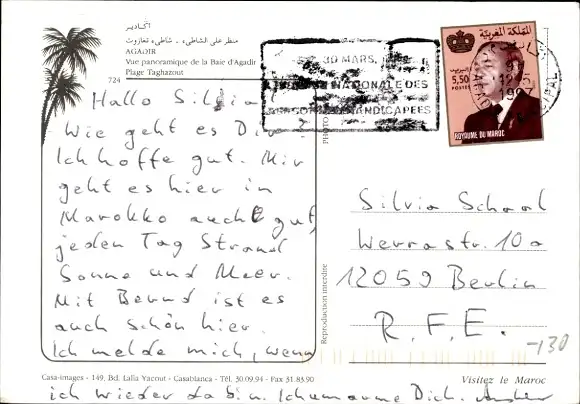 اكادير
منظر على الشاطىء - شاطىء تغازوت
AGADIR
Vue panoramique de la Baie d'Agadir
Plage Taghazout
724
Hallo Silvia!
Wie geht es Dir
Ich hoffe gut. Mir
geht es hier in
Marokko auch gut,
jeden Tag Strand
Sonne und Meer.
Mit Bernd ist es
auch schön hier.
Ich melde mich, wenn
ich wieder da bin. Ich umarme Dich.
Casa-images - 149, Bd. Lalla Yacout - Casablanca - Tél. 30.09.94 - Fax 31.83.90
PHOTO
Reproduction interdite
30 MARS,
NATIONALE DES
HANDICAPEES
المملكة المغربية
5,50
POSTES
ROYAUME DU MAROC
1997
Silvia Schaal
Werrastr. 10a
12059 Berlin
R.F.E.
-130
Visitez le Maroc